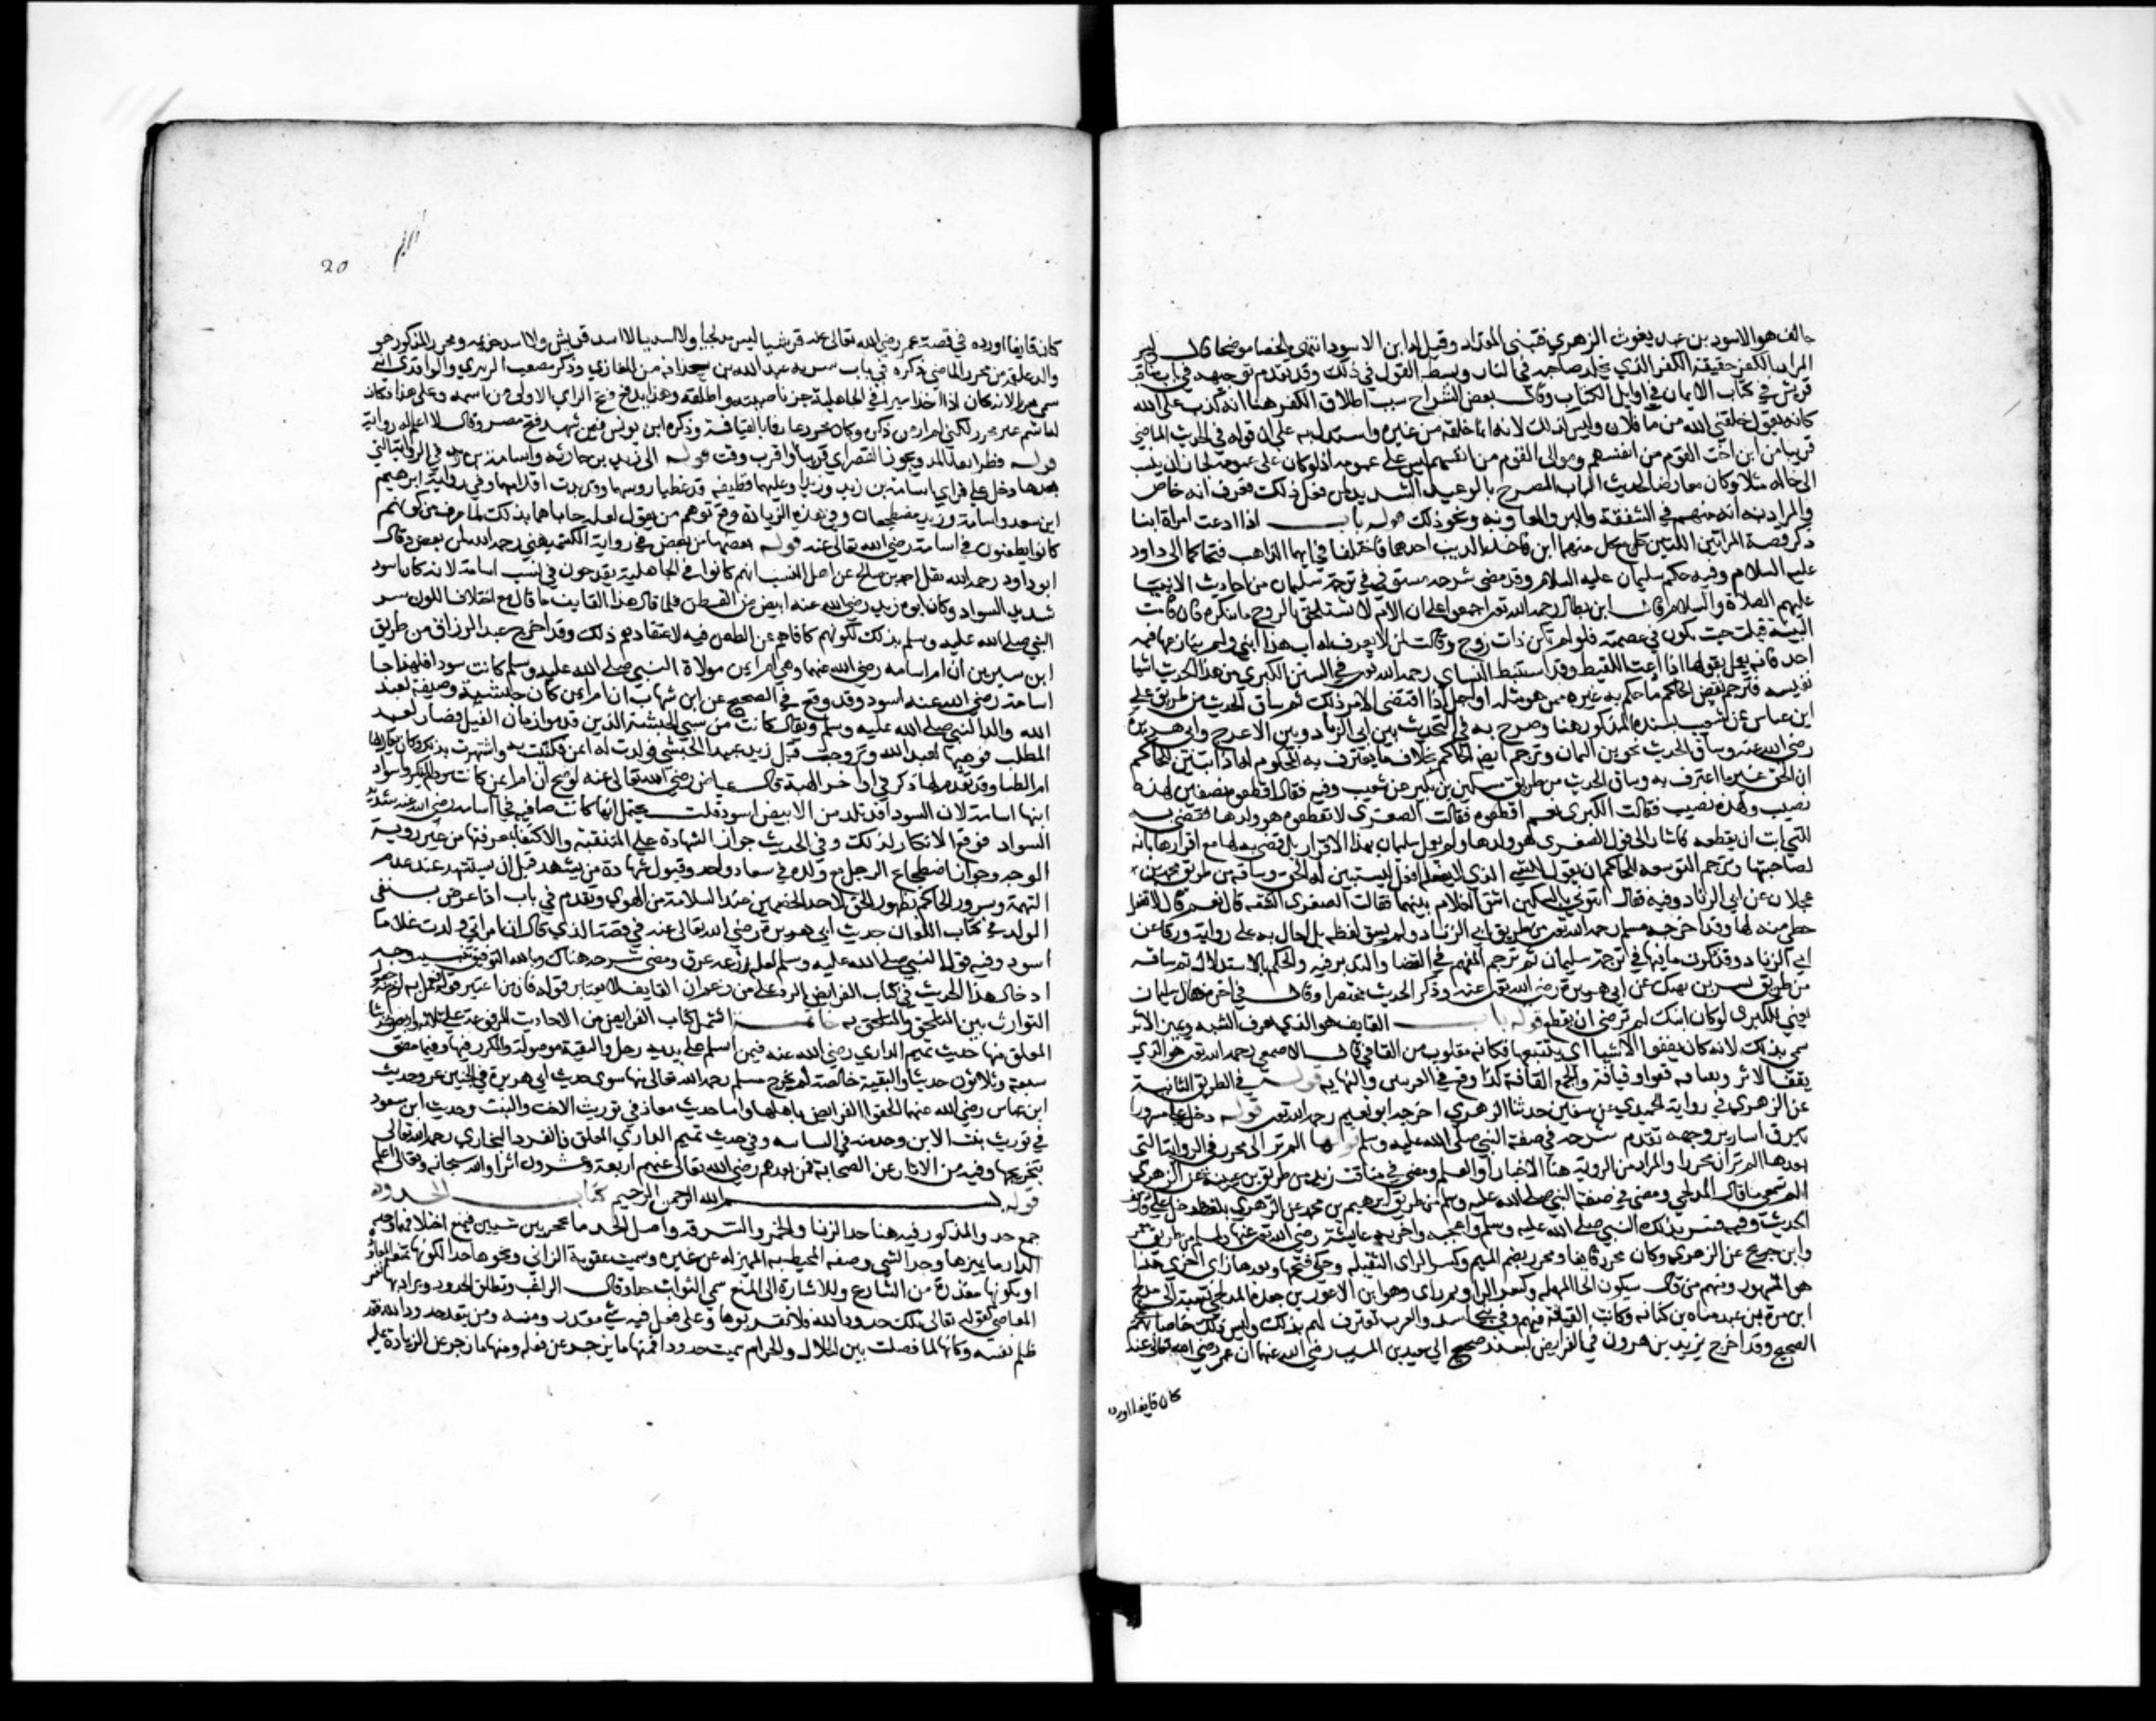 حالف هو الاسود بن عبد يغوث الزهري فتبنى المقداد وقيل له ابن الاسود انتهى ملخصا موضحا قال ليس
المراد بالكفر حقيقة الكفر الذي يخلد صاحبه في النار وبسط القول في ذلك وقد تقدم توجيهه في باب مناقب
قريش في كتاب الايمان في اوايل الكتاب وقال بعض الشراح سبب اطلاق الكفر هنا انه كذب على الله
كانه يقول خلقني الله من ما فلان وليس كذلك لانه انما خلقه من غيره واستدل به على ان قوله في الحديث الماضي
قريبا من ابن اخت القوم من انفسهم وموالى القوم من انفسهم ليس على عمومه اذ لو كان على عمومه لجاز ان ينسب
الى خاله مثلا وكان معارضا لحديث الباب المصرح بالوعيد الشديد لمن فعل ذلك فعرف انه خاص
والمراد به انه منهم في الشفقة والبر والمعاونة ونحو ذلك قوله باب اذا ادعت امراة ابنا
ذكر قصة المراتين اللتين كان مع كل منهما ابن فاخذ الذيب احدهما فاختلفا في ايهما الذاهب فتحاكما الى داود
عليه السلام وفيه حكم سليمان عليه السلام وقد مضى شرحه مستوفى في ترجمة سليمان من احاديث الانبيا
عليهم الصلاة والسلام قال ابن بطال رحمه الله تعالى اجمعوا على ان الام لا تستلحق بالزوج ما ينكره فان قامت
البينة قبلت حيث يكون في عصمته فلو لم تكن ذات زوج وقالت لمن لا يعرف له اب هذا ابني ولم ينازعها فيه
احد فانه يعمل بقولها
ابن عباس عن شعيب بسنده المذكور هنا وصرح به في التحديث بين ابي الزناد وبين الاعرج وابي هريرة
رضي الله عنه وساق الحديث نحو
ان الحق غير ما اعترف به وساق الحديث من طريق مسكين بن بكير عن شعيب وفيه فقال اقطعوه نصفين لهذه
نصيب ولهذه نصيب فقالت الكبرى نعم اقطعوه فقالت الصغرى لا تقطعوه هو ولدها فقضى به
للتي ابت ان يقطعه
لصاحبتها وترجم التوسعة للحاكم ان يقول للشي الذي لا يفعله افعل ليستبين له الحق وساقه من طريق محمد بن
عجلان عن ابي الزناد وفيه فقال ايتوني بالسكين اشق الغلام بينهما فقالت الصغرى اتشقه قال نعم قال لا تفعل
حظي منه لها وقد اخرجه مسلم رحمه الله تعالى من طريق ابي الزناد ولم يسق لفظه بل احال به على رواية ورقا عن
ابي الزناد وقد ذكرت ما فيها في ترجمة سليمان ثم ترجم الفهم في القضا والتدبر فيه والحكم بالاستدلال ثم ساقه
من طريق بشير بن نهيك عن ابي هريرة رضي الله تعالى عنه وذكر الحديث مختصرا وقال في اخره قال سليمان
يعني للكبرى لو كان ابنك لم ترضي ان يقطع قوله باب القايف هو الذي يعرف الشبه ويميز الاثر
سمي بذلك لانه كان يقفوا الاشيا اي يتتبعها فكانه مقلوب من القافي قال الاصمعي رحمه الله تعالى هو الذي
يقفو الاثر ويقتافه قفوا وقيافة والجمع القافة كذا وقع في الغريبين والنهاية قوله في الطريق الثانية
عن الزهري في رواية الحميدي عن سفين حدثنا الزهري اخرجه ابو نعيم رحمه الله تعالى قوله دخل علي مسرورا
تبرق اسارير وجهه تقدم شرحه في صفة النبي صلى الله عليه وسلم قوله الم تر الى مجزز في الرواية التي
بعدها الم تر ان مجززا والمراد من الروية هنا الاخبار او العلم ومضى في مناقب زيد من طريق بن عيينة عن الزهري
الم تسمعي ما قال المدلجي ومضى في صفة النبي صلى الله عليه وسلم من طريق ابرهيم بن محمد عن الزهري بلفظ دخل علي قايف
الحديث وفيه فسر بذلك النبي صلى الله عليه وسلم واعجبه واخبر به عايشة رضي الله تعالى عنها ولمسلم من طريق معمر
وابن جريج عن الزهري وكان مجزز قايفا ومجزز بضم الميم وكسر الزاي الثقيلة وحكي فتحها وبعدها زاي اخرى هذا
هو المشهور ومنهم من قال بسكون الحا المهملة وكسر الرا ثم زاي وهو ابن الاعور بن جعدة المدلجي نسبة الى مدلج
ابن مرة بن عبد مناه بن كنانه وكانت القيافة فيهم وفي بني اسد والعرب تعترف لهم بذلك وليس ذلك خاصا بهم
الصحيح وقد اخرج يزيد بن هرون في الفرايض بسند صحيح الى سعيد بن المسيب رضي الله عنهما ان عمر رضي الله تعالى عنه
كان قايفا اورده
20
كان قايفا اورده في قصة عمر رضي الله تعالى عنه قرشيا ليس مدلجيا ولا اسديا لا اسد قريش ولا اسد خزيمه ومجزز المذكور هو
والد علقمة بن مجزز الماضي ذكره في باب سرية عبد الله بن حذافه من المغازي وذكر مصعب الزبيري والواقدي انه
سمي مجززا لانه كان اذا اخذ اسيرا في الجاهلية جز ناصيته واطلقه وهذا يدفع فتح الزاي الاولى من اسمه وعلى هذا فكان
له اسم غير مجزز لكني لم ار من ذكره وكان مجزز عارفا بالقيافة وذكره ابن يونس فيمن شهد فتح مصر وقال لا اعلم له رواية
قوله نظر انفا بالمد ويجوز القصر اي قريبا او اقرب وقت قوله الى زيد بن حارثه واسامة بن زيد في الرواية التي
بعدها دخل علي فراى اسامة بن زيد وزيدا وعليهما قطيفه قد غطيا روسهما وقد بدت اقدامهما وفي رواية ابرهيم
ابن سعد واسامة وزيد مضطجعان وفي هذه الزيادة دفع توهم من يقول لعله حاباهما بذلك لما عرف من كونهم
كانوا يطعنون في اسامة رضي الله تعالى عنه قوله بعضها من بعض في رواية الكشميهني رحمه الله لمن بعض وقال
ابو داود رحمه الله نقل احمد بن صالح عن اهل النسب انهم كانوا في الجاهلية يقدحون في نسب اسامة لانه كان اسود
شديد السواد وكان ابوه زيد رضي الله عنه ابيض من القطن فلما قال هذا القايف ما قال مع اختلاف اللون سر
النبي صلى الله عليه وسلم بذلك لكونهم كافا لهم عن الطعن فيه لاعتقادهم ذلك وقد اخرج عبد الرزاق من طريق
ابن سيرين ان ام اسامه رضي الله عنهما وهي ام ايمن مولاة النبي صلى الله عليه وسلم كانت سودا فلهذا جا
اسامة رضي الله عنه اسود وقد وقع في الصحيح عن ابن شهاب ان ام ايمن كان حبشية وصيفة لعبد
الله والد النبي صلى الله عليه وسلم ويقال كانت من سبي الحبشة الذين قدموا زمان الفيل فصار لعبد
المطلب فوهبها لعبد الله وتزوجت قبل زيد عبيدا الحبشي فولدت له ايمن فكنيت به واشتهرت بذلك وكان يقال لها
ام الظبا وقد تقدم لها ذكر في اواخر الهبة قال عياض رضي الله تعالى عنه لو صح ان ام ايمن كانت سودا لم ينكروا سواد
ابنها اسامة لان السودا قد تلد من الابيض اسود قلت يحتمل انها كانت صافيه فجا اسامه رضي الله عنه شديد
السواد فوقع الانكار لذلك وفي الحديث جواز الشهادة على المتنقبة والاكتفا بمعرفتها من غير روية
الوجه وجواز اضطجاع الرجل مع ولده في شعار واحد وقبول شهادة من يشهد قبل ان يستشهد عند عدم
التهمة وسرور الحاكم بظهور الحق لاحد الخصمين عند السلامة من الهوى وتقدم في باب اذا عرض بنفي
الولد في كتاب اللعان حديث ابي هريرة رضي الله تعالى عنه في قصة الذي قال ان امراتي ولدت غلاما
اسود وفيه قول النبي صلى الله عليه وسلم لعله نزعه عرق ومضى شرحه هناك وبالله التوفيق تنبيه وجه
ادخال هذا الحديث في كتاب الفرايض الرد على من زعم ان القايف لا يعتبر قوله فان من اعتبر قوله فعمل به لزم منه حصول
التوارث بين الملحق والملحق به خاتمة اشتمل كتاب الفرايض من الاحاديث المرفوعة على ثلاثة واربعين حديثا
المعلق منها حديث تميم الداري رضي الله عنه فيمن اسلم على يديه رجل والبقية موصولة والمكرر فيها وفيما مضى
سبعة وثلاثون حديثا والبقية خالصة لم يخرج مسلم رحمه الله تعالى منها سوى حديث ابي هريرة في الجنين غرة وحديث
ابن عباس رضي الله عنهما الحقوا الفرايض باهلها واما حديث معاذ في توريث الاخت والبنت وحديث ابن مسعود
في توريث بنت الابن وحديثه في السايبه وفي حديث تميم الداري المعلق فانفرد البخاري رحمه الله تعالى
بتخريجها وفيه من الاثار عن الصحابة فمن بعدهم رضي الله تعالى عنهم اربعة وعشرون اثرا والله سبحانه وتعالى اعلم
قوله بسم الله الرحمن الرحيم كتاب الحدود
جمع حد والمذكور فيه هنا حد الزنا والخمر والسرقه واصل الحد ما يحجز بين شيين فيمنع اختلاطهما وحد
الدار ما يميزها وحد الشي وصفه المحيط به المميز له عن غيره وسميت عقوبة الزاني ونحوها حدا لكونها تمنعه المعاودة
او لكونها مقدرة من الشارع وللاشارة الى المنع سمي البواب حدادا قال الراغب وتطلق الحدود ويراد بها نفس
المعاصي كقوله تعالى تلك حدود الله فلا تقربوها وعلى فعل فيه شي مقدر ومنه ومن يتعد حدود الله فقد
ظلم نفسه وكانها لما فصلت بين الحلال والحرام سميت حدودا فمنها ما زجر عن فعله ومنها ما زجر عن الزيادة عليه